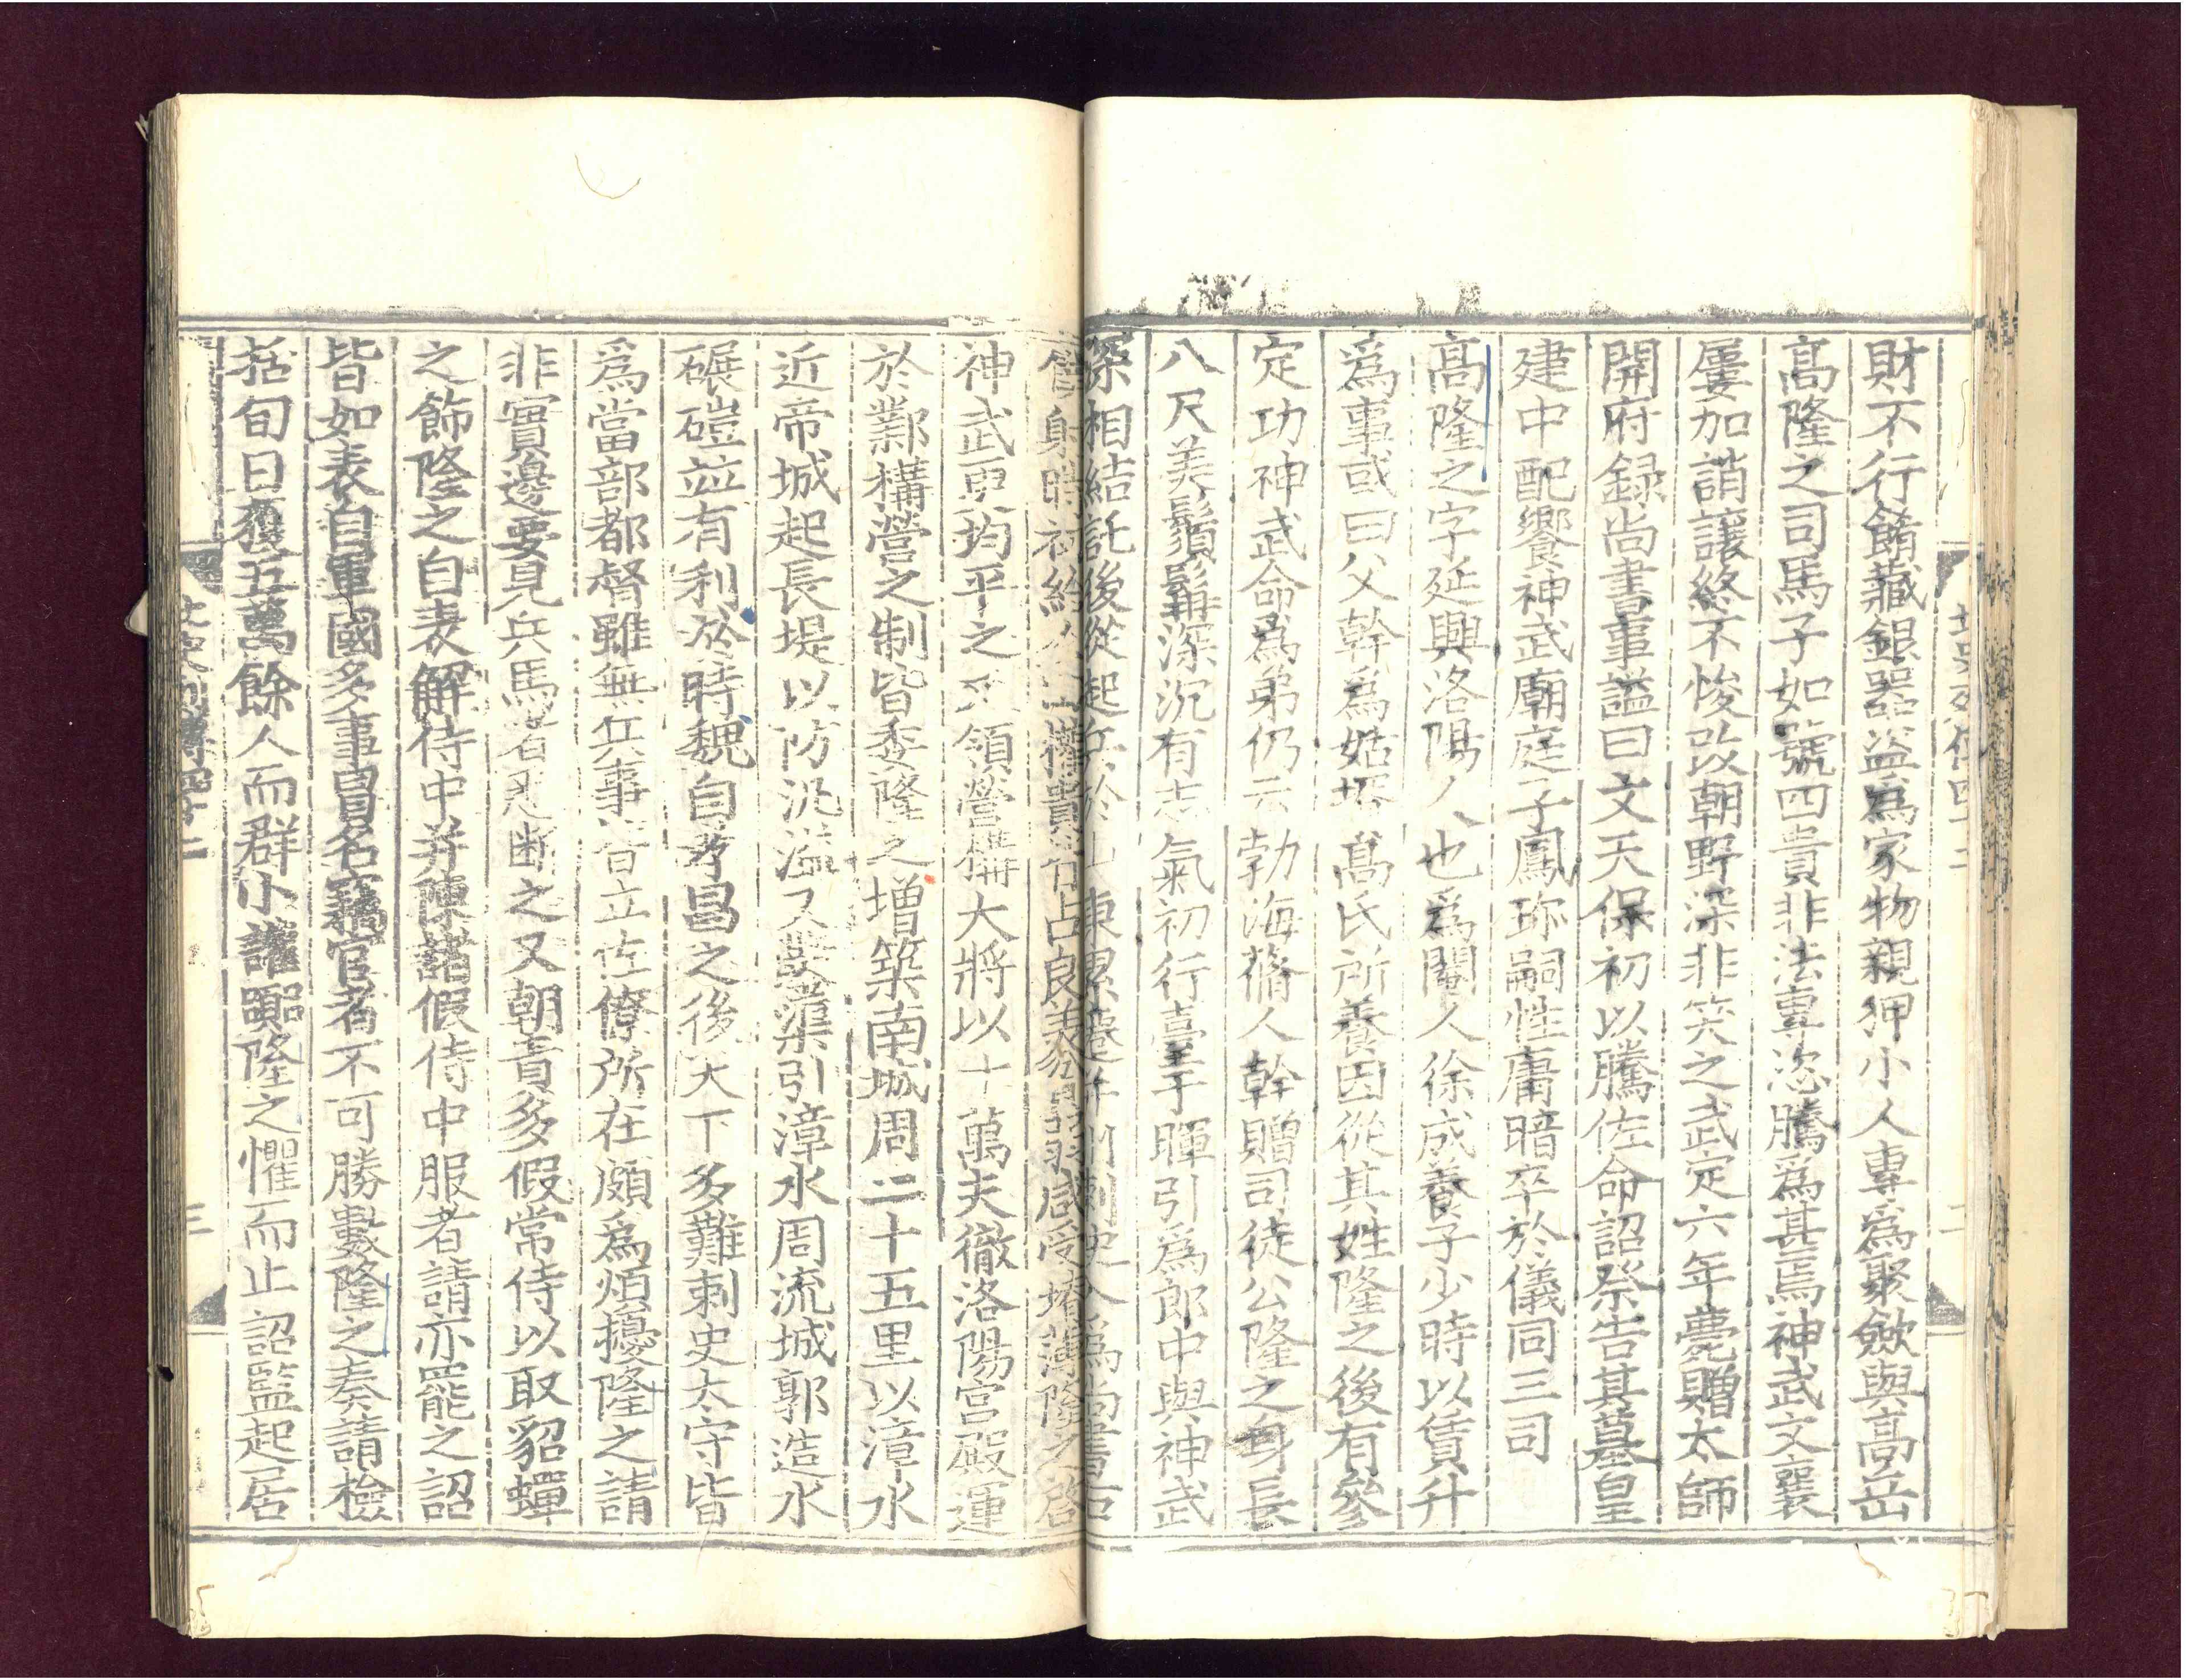 財不行餚藏銀器盜爲家物親狎小人專爲聚斂與高岳
高隆之司馬子如號四貴非法專恣騰爲甚焉神武文襄
屢加誚讓終不悛改朝野深非笑之武定六年薨贈太師
開府錄尚書事諡曰文天保初以騰佐命詔祭告其墓皇
建中配饗神武廟庭子鳳珍嗣性庸暗卒於儀同三司
高隆之字延興洛陽人也爲閹人徐成養子少時以賃升
爲事或曰父幹爲姑壻高氏所養因從其姓隆之後有參
定功神武命爲弟仍云勃海蓚人幹贈司徒公隆之身長
八尺美鬚髯深沉有志氣初行臺于暉引爲郎中與神武
深相結託後從起兵於山東累遷并州刺史入爲尚書右
僕射時初給人田權貴皆占良美貧弱咸受瘠薄隆之啓
神武更均平之又領營構大將以十萬夫徹洛陽宮殿運
於鄴構營之制皆委隆之增築南城周二十五里以漳水
近帝城起長堤以防汎溢又鑿渠引漳水周流城郭造水
碾磑並有利於時魏自孝昌之後天下多難刺史太守皆
爲當部都督雖無兵事皆立佐僚所在頗爲煩擾隆之請
非實邊要見兵馬者悉斷之又朝貴多假常侍以取貂蟬
之飾隆之自表解侍中并陳諸假侍中服者請亦罷之詔
皆如表自軍國多事冒名竊官者不可勝數隆之奏請檢
括旬日獲五萬餘人而群小讙嚻隆之懼而止詔監起居
北史列傳四十二
三